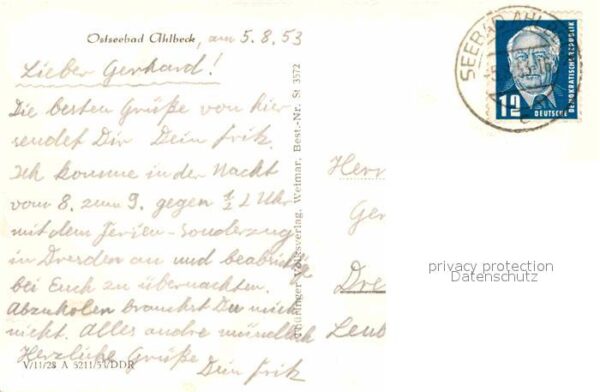 Ostseebad Ahlbeck, am 5.8.53
Lieber Gerhard!
Die besten Grüße von hier
sendet Dir Dein Fritz.
Ich komme in der Nacht
vom 8. zum 9. gegen ½ 2 Uhr
mit dem Ferien-Sonderzug
in Dresden an und beabsichtige
bei Euch zu übernachten.
Abzuholen brauchst Du mich
nicht. Alles andre mündlich
Herzliche Grüße
Dein Fritz
V/11/28 A 5211/53/DDR
Thüringer Volksverlag, Weimar, Best.-Nr. St 3572
SEEBAD AHLB
12
DEUTSCHE
DEMOKRATISCHE REPUBLIK
Herr
Ger
Dre
Leub
privacy protection
Datenschutz